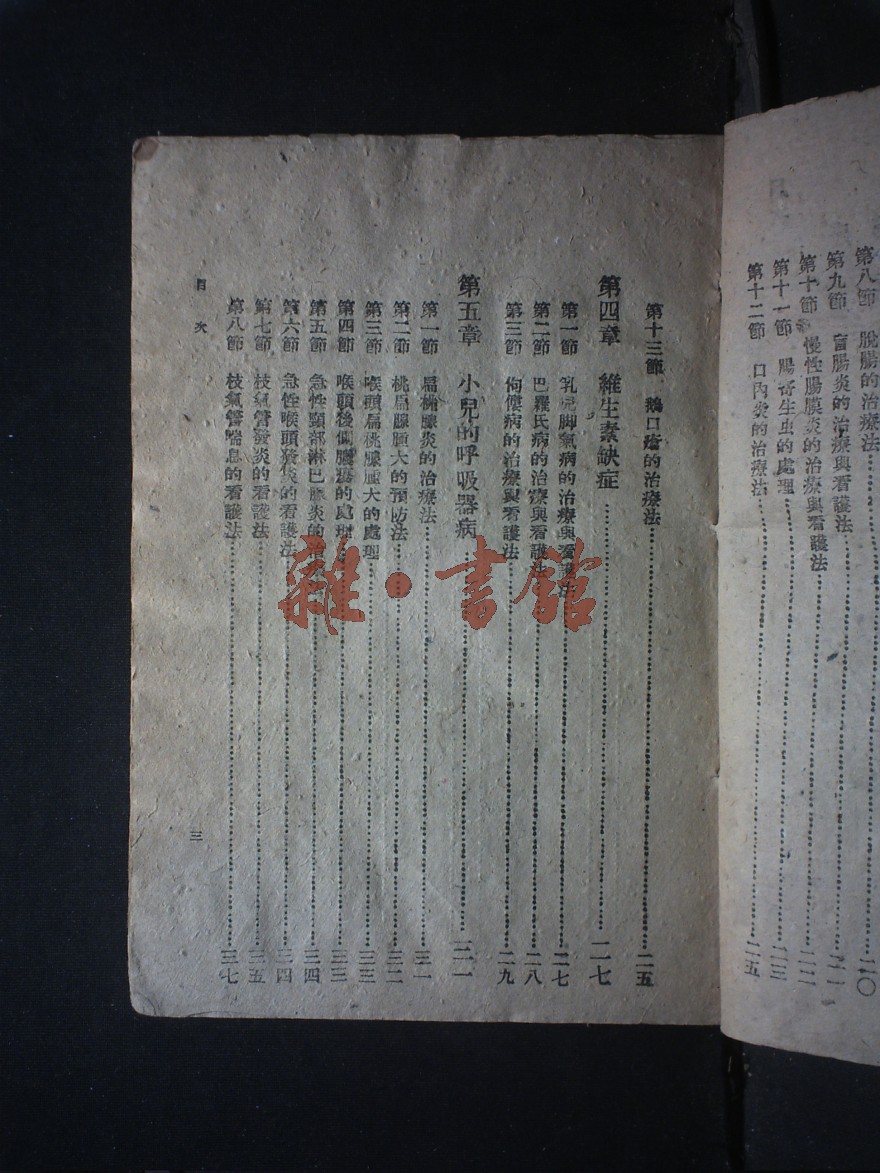 第八節 脫腸的治療法……二〇
第九節 盲腸炎的治療與看護法……二一
第十節 慢性腸膜炎的治療與看護法……二二
第十一節 腸寄生虫的處理……二三
第十二節 口內炎的治療法……二五
第十三節 鵝口瘡的治療法……二五
第四章 維生素缺症……二七
第一節 乳兒脚氣病的治療與看護法……二七
第二節 巴羅氏病的治療與看護法……二八
第三節 佝僂病的治療與看護法……二九
第五章 小兒的呼吸器病……三一
第一節 扁桃腺炎的治療法……三一
第二節 桃扁腺腫大的預防法……三二
第三節 喉頭扁桃腺腫大的處理……三三
第四節 喉頭後側膿瘍的處理法……三三
第五節 急性頸部淋巴腺炎的治……三四
第六節 急性喉頭發炎的看護法……三四
第七節 枝氣管發炎的看護法……三五
第八節 枝氣管喘息的看護法……三七
目次
三
雜·書館